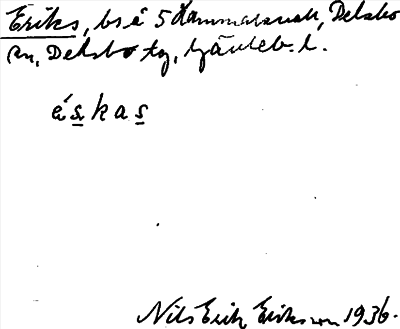 Eriks, bs i 5 Hammarsvall, Delsbo
sn, Delsbo tg, Gävleb. l.
éskas
Nils Erik Eriksson 1936.